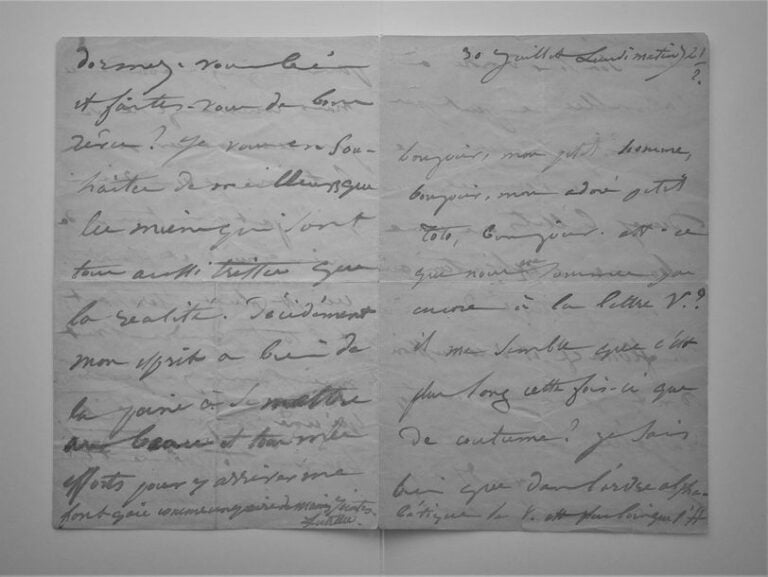 Dormez-vous bien
et faites-vous de bons
rêves? Je vous en sou-
haite de meilleurs que
les miens qui sont
tous aussi tristes que
la réalité. Décidément
mon esprit a bien de
la peine à se mettre
au beau et tous mes
efforts pour y arriver me
font gaie comme une paire de mains jointes.
Juliette
30 Juillet Lundi matin
bonjour, mon petit homme,
bonjour, mon adoré petit
Toto, bonjour. est-ce
que nous ne sommes pas
encore à la lettre V.?
il me semble que c'est
plus long cette fois-ce que
de coutume? je sais
bien que dans l'ordre alpha-
bétique le V. est plus loin que l'H